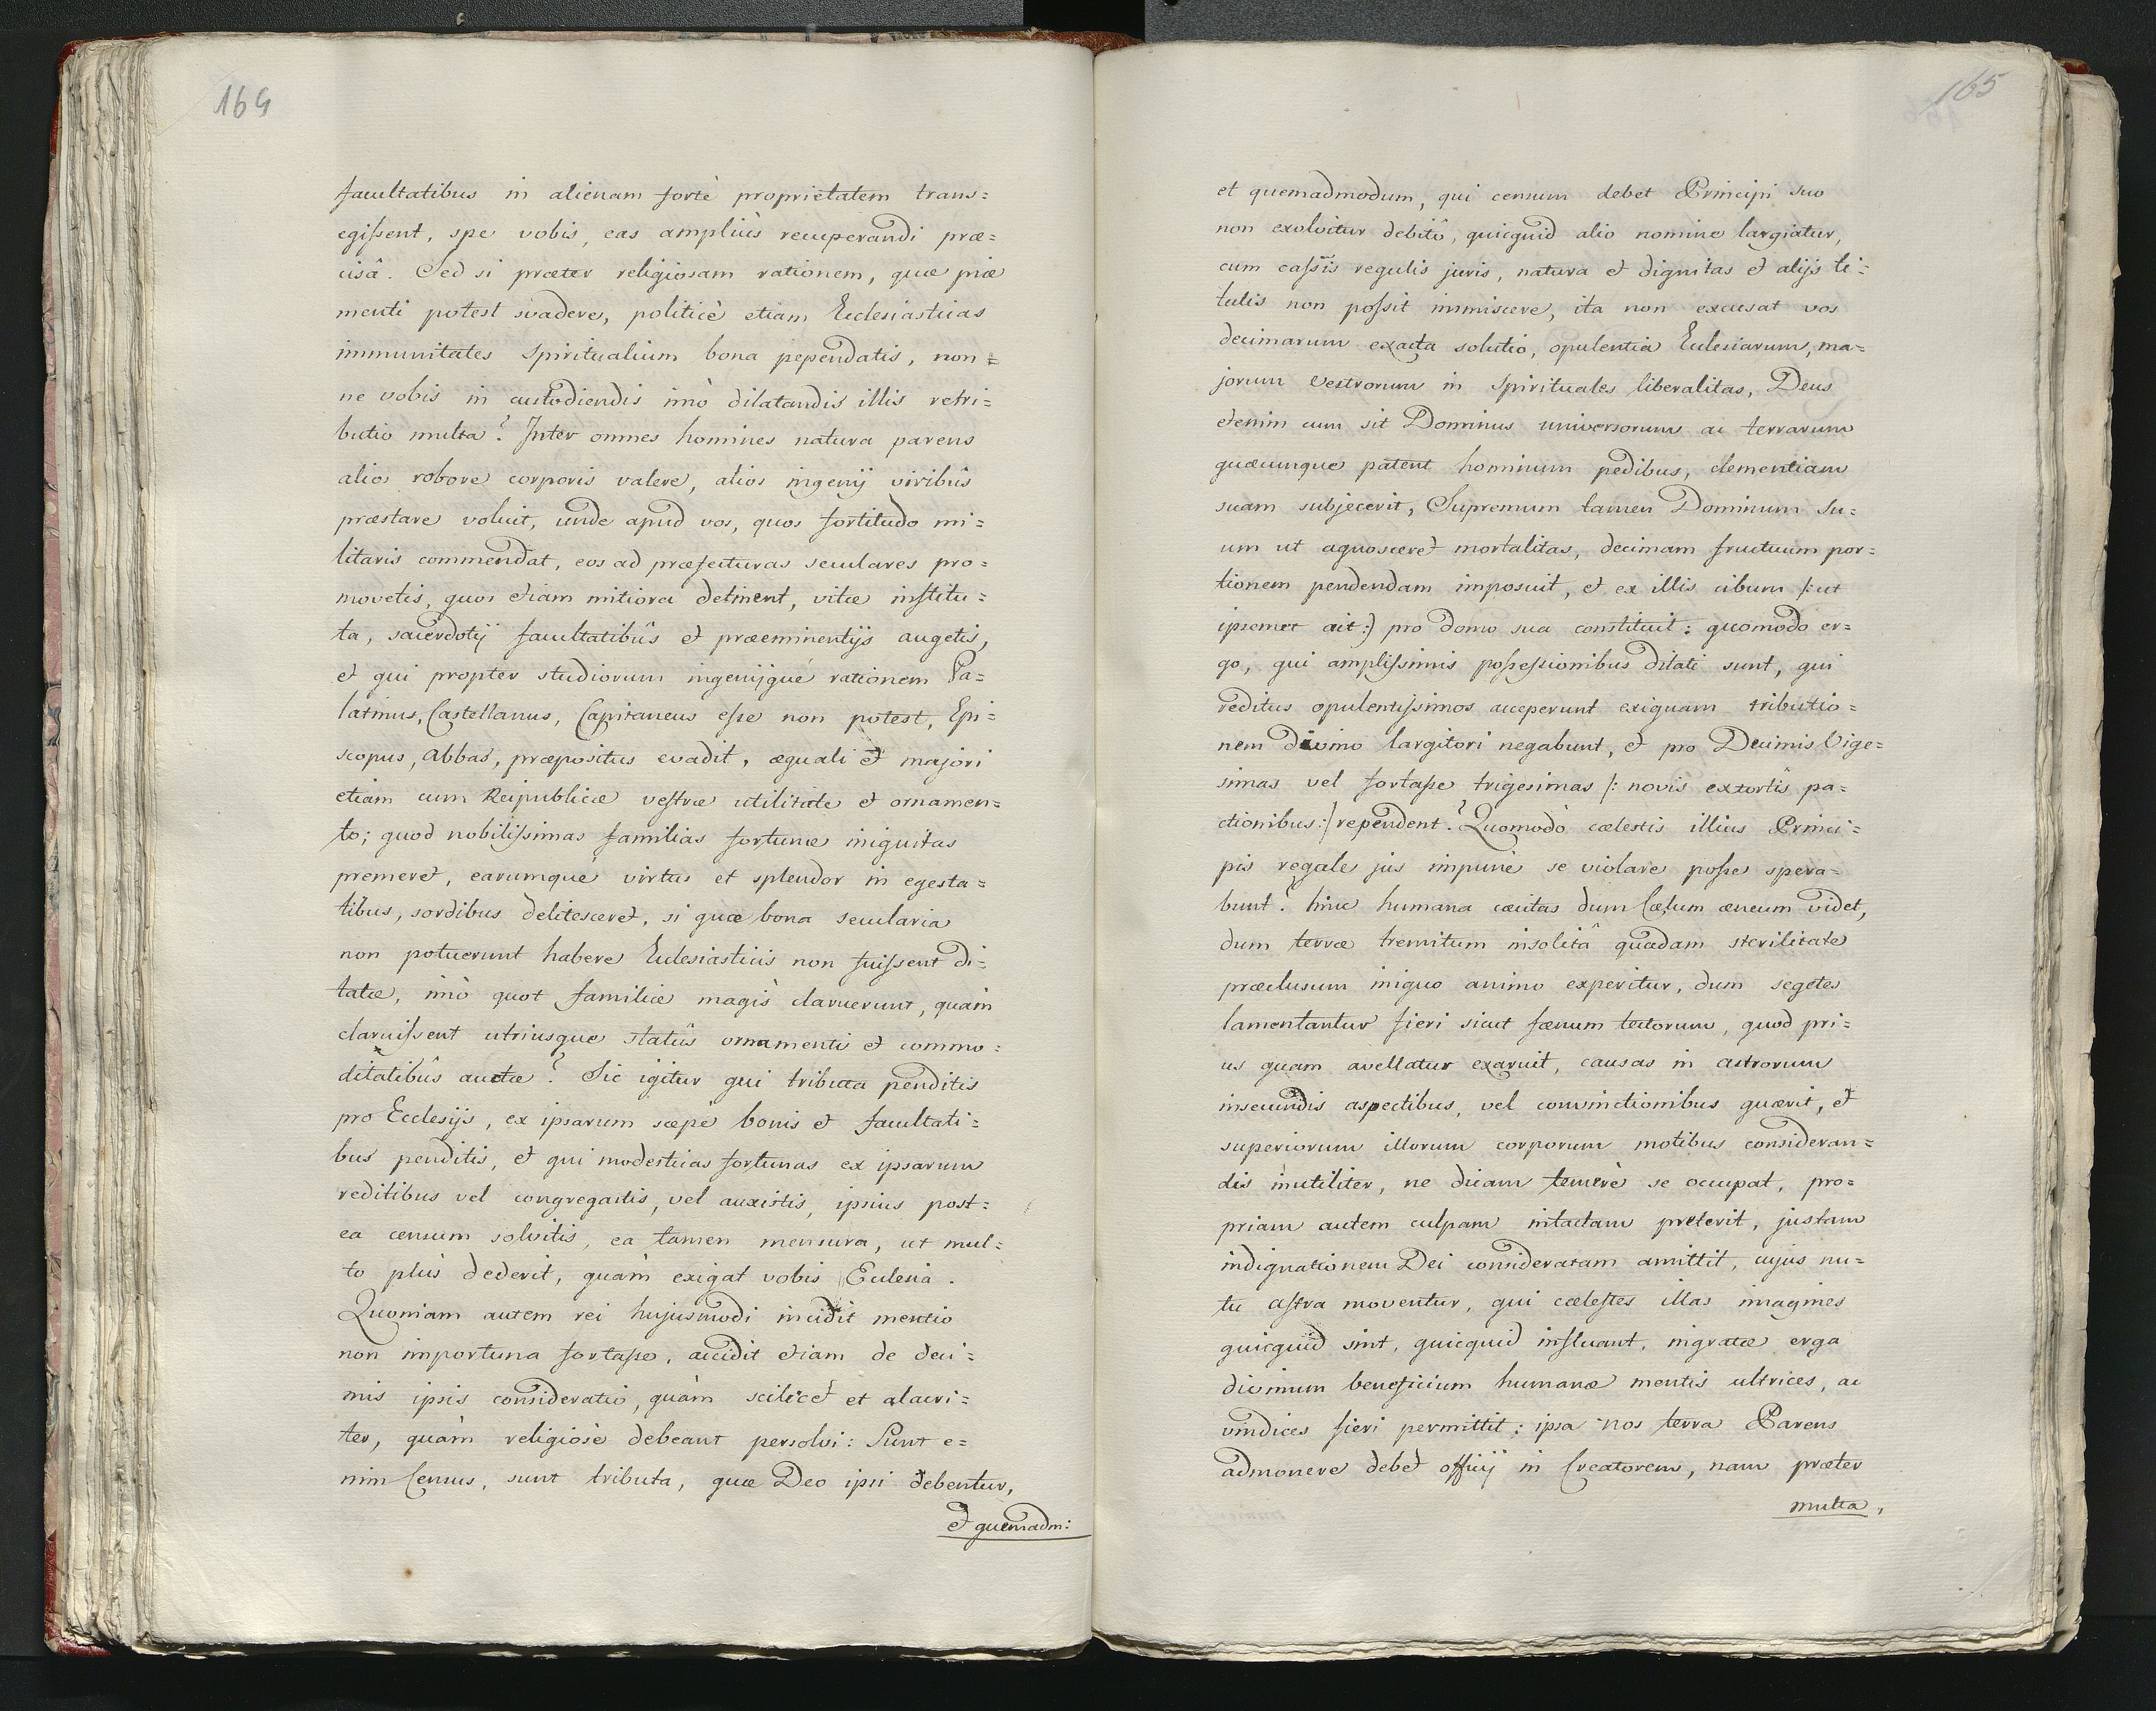 164
facultatibus in alienam fortè proprietatem trans=
egissent, spe vobis, eas ampliùs recuperandi præ=
cisâ. Sed si præter religiosam rationem, quæ piæ
menti potest svadere, politicè etiam Ecclesiasticas
immunitates spiritualium bona pependatis, non=
ne vobis in custodiendis imò dilatandis illis retri=
butio multa? Inter omnes homines natura parens
alios robore corporis valere, alios ingenij viribûs
præstare voluit, unde apud vos, quos fortitudo mi=
litaris commendat, eos ad præfecturas seculares pro=
movetis, quos etiam mitiora detinent, vitæ institu=
ta, sacerdotij facultatibûs et præeminentijs augetis,
et qui propter studiorum ingenijque rationem Pa=
latinus, Castellanus, Capitaneus esse non potest, Epi=
scopus, Abbas, præpositus evadit, æquali et majori
etiam cum Reipublicæ vestræ utilitate et ornamen=
to; quod nobilissimas familias fortunæ iniquitas
premeret, earumque virtus et splendor in egesta=
tibus, sordibus delitesceret, si quæ bona secularia
non potuerunt habere Ecclesiasticis non fuissent di=
tatæ, imò quot familiæ magìs claruerunt, quàm
claruissent utriusque statûs ornamentis et commo=
ditatibûs auctæ? Sic igitur qui tributa penditis
pro Ecclesijs, ex ipsarum sæpè bonis et facultati=
bus penditis, et qui modesticas fortunas ex ipsarum
reditibus vel congregastis, vel auxistis, ipsius post=
ea censum solvitis, ea tamen mensura, ut mul=
to plùs dederit, quàm exigat vobis Ecclesia.
Quoniam autem rei hujusmodi incidit mentio
non importuna fortasse, accidit etiam de deci=
mis ipsis consideratio, quàm scilicet et alacri=
ter, quàm religiosè debeant persolvi: Sunt e=
nim Census, sunt tributa, quæ Deo ipsi debentur,
et quemadm:
165
et quemadmodum, qui censum debet Principi suo
non exolvitur debitô, quicquid alio nomine largiatur,
cum cassis regulis juris, natura et dignitas et alijs ti=
tulis non possit immiscere, ita non excusat vos
decimarum exacta solutio, opulentia Ecclesiarum, ma=
jorum vestrorum in spirituales liberalitas, Deus
etenim cum sit Dominus universorum ac terrarum
quæcunque patent hominum pedibus, clementiam
suam subjecerit, Supremum tamen Dominum Su=
um ut agnosceret mortalitas, decimam fructuum por=
tionem pendendam imposuit, et ex illis cibum /: ut
ipsemet ait :) pro domo sua constituit: quomodo er=
go, qui amplissimis possessionibus ditati sunt, qui
reditus opulentissimos acceperunt exiguam tributio=
nem divino largitori negabunt, et pro Decimis Vige=
simas vel fortasse trigesimas /: novis extortis pa=
ctionibus:/ rependent? Quomodò cælestis illius Princi=
pis regale jus impunè se violare posse spera=
bunt? hinc humana cæcitas dum Cælum æneum videt,
dum terræ tremitum insolitâ quadam sterilitate
præclusum iniquo animo experitur, dum segetes
lamentantur fieri sicut fænum tectorum, quod pri=
us quam avellatur exaruit, causas in astrorum
insecundis aspectibus, vel convinctionibus quærit, et
superiorum illorum corporum motibus consideran=
dis inutiliter, ne dicam temerè se occupat, pro=
priam autem culpam intactam preterit, justam
indignationem Dei consideratam amittit, cujus nu=
tu astra moventur, qui cælestes illas imagines
quicquid sint, quicquid influant, ingratæ erga
divinum beneficium humanæ mentis ultrices, ac
vindices fieri permittit: ipsa nos terra Parens
admonere debet officij in Creatorem, nam præter
multa,